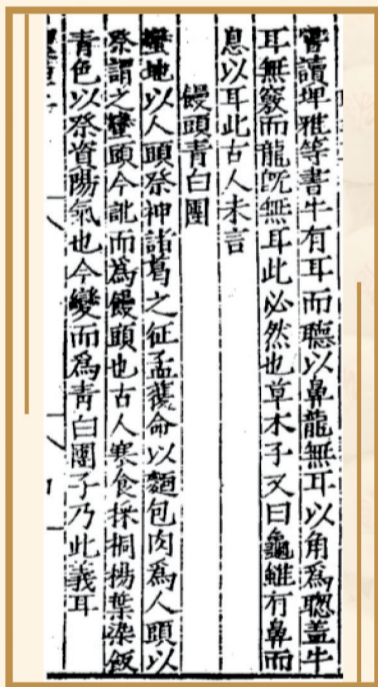 嘗讀埤雅等書牛有耳而聽以鼻龍無耳以角爲聦盖牛
耳無竅而龍旣無耳此必然也草木子又曰龜雖有鼻而
息以耳此古人未言
饅頭青白團
蠻地以人頭祭神諸葛之征孟獲命以麵包肉爲人頭以
祭謂之蠻頭今訛而爲饅頭也古人寒食採桐楊葉染飯
青色以祭資陽氣也今變而爲青白團子乃此義耳